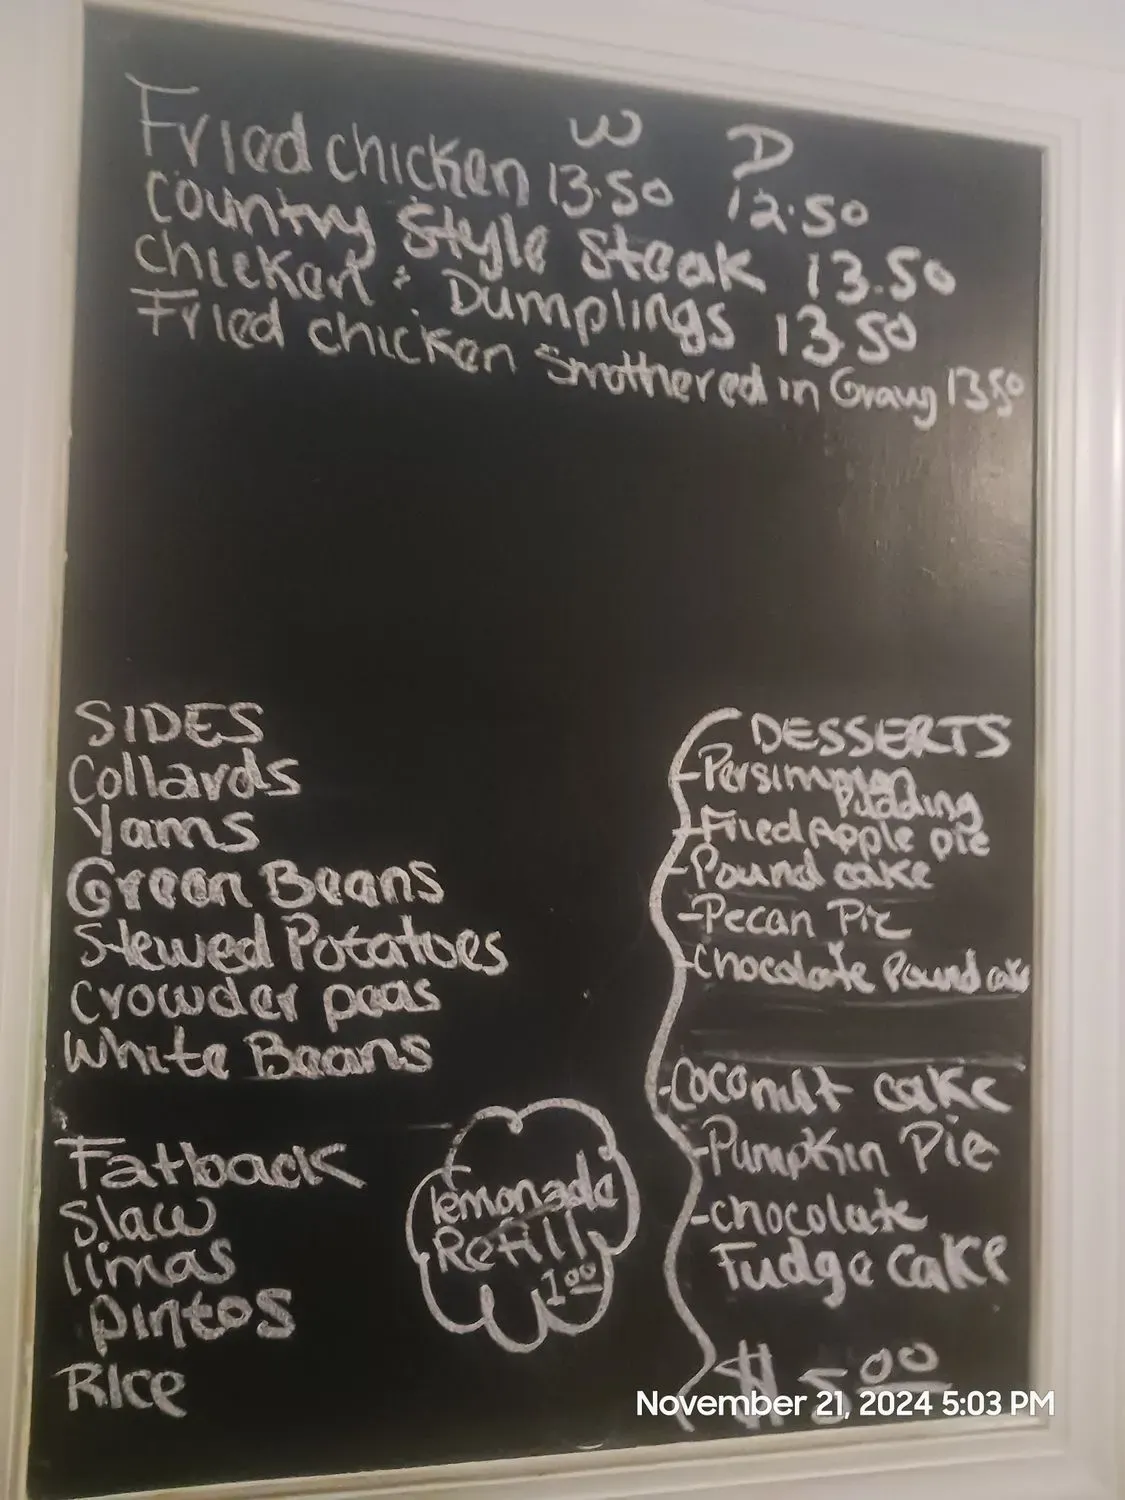 W D
Fried chicken 13.50 12.50
Country Style Steak 13.50
chicken & Dumplings 13.50
Fried chicken Smothered in Gravy 13.50
SIDES
Collards
Yams
Green Beans
Stewed Potatoes
Crowder peas
White Beans
Fatback
Slaw
limas
pintos
Rice
lemonade
Refill
1.00
DESSERTS
-Persimmon
Pudding
-Fried Apple pie
-Pound cake
-Pecan Pie
-Chocolate Pound cake
-Coconut cake
-Pumpkin Pie
-chocolate
Fudge cake
$ 5.00
November 21, 2024 5:03 PM